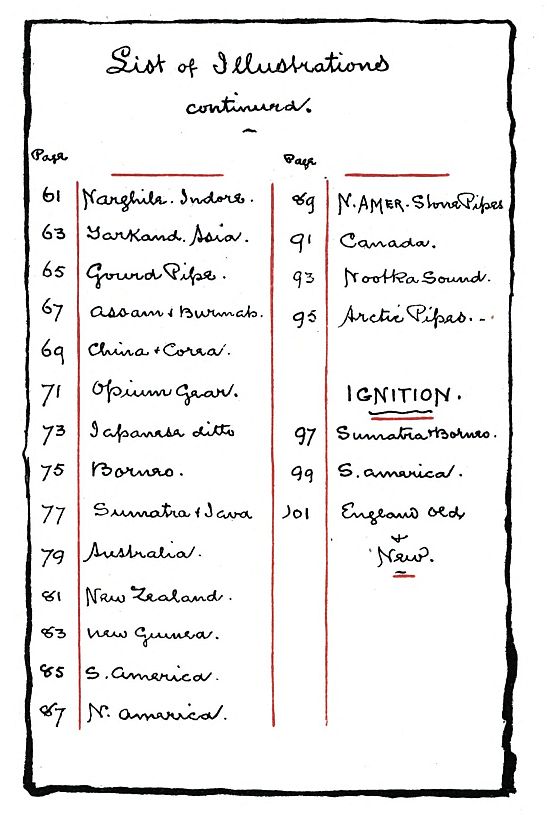 List of Illustrations
continued.
Page
61 Narghile. Indore.
63 Yarkand. Asia.
65 Gourd Pipe.
67 Assam & Burmah.
69 China & Corea.
71 Opium Gear.
73 Japanese ditto
75 Borneo.
77 Sumatra & Java
79 Australia.
81 New Zealand.
83 New Guinea.
85 S. America.
87 N. America.
Page
89 N. AMER. Stone Pipes
91 Canada.
93 Nootka Sound.
95 Arctic Pipes. -.
IGNITION.
97 Sumatra & Borneo.
99 S. America.
101 England Old
&
New.